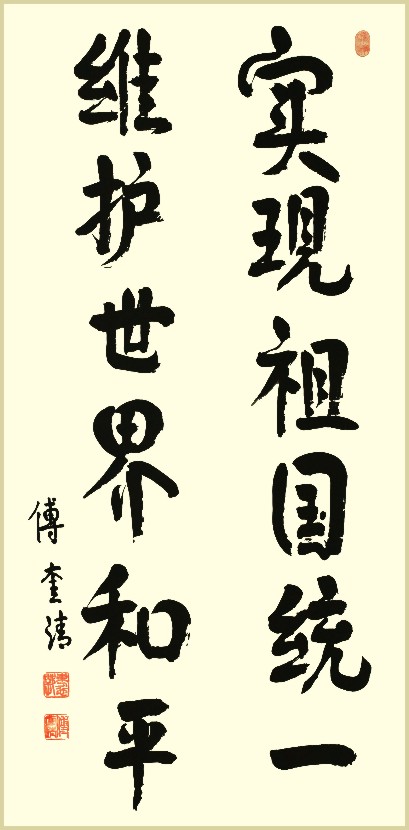 实现祖国统一
维护世界和平
傅奎清